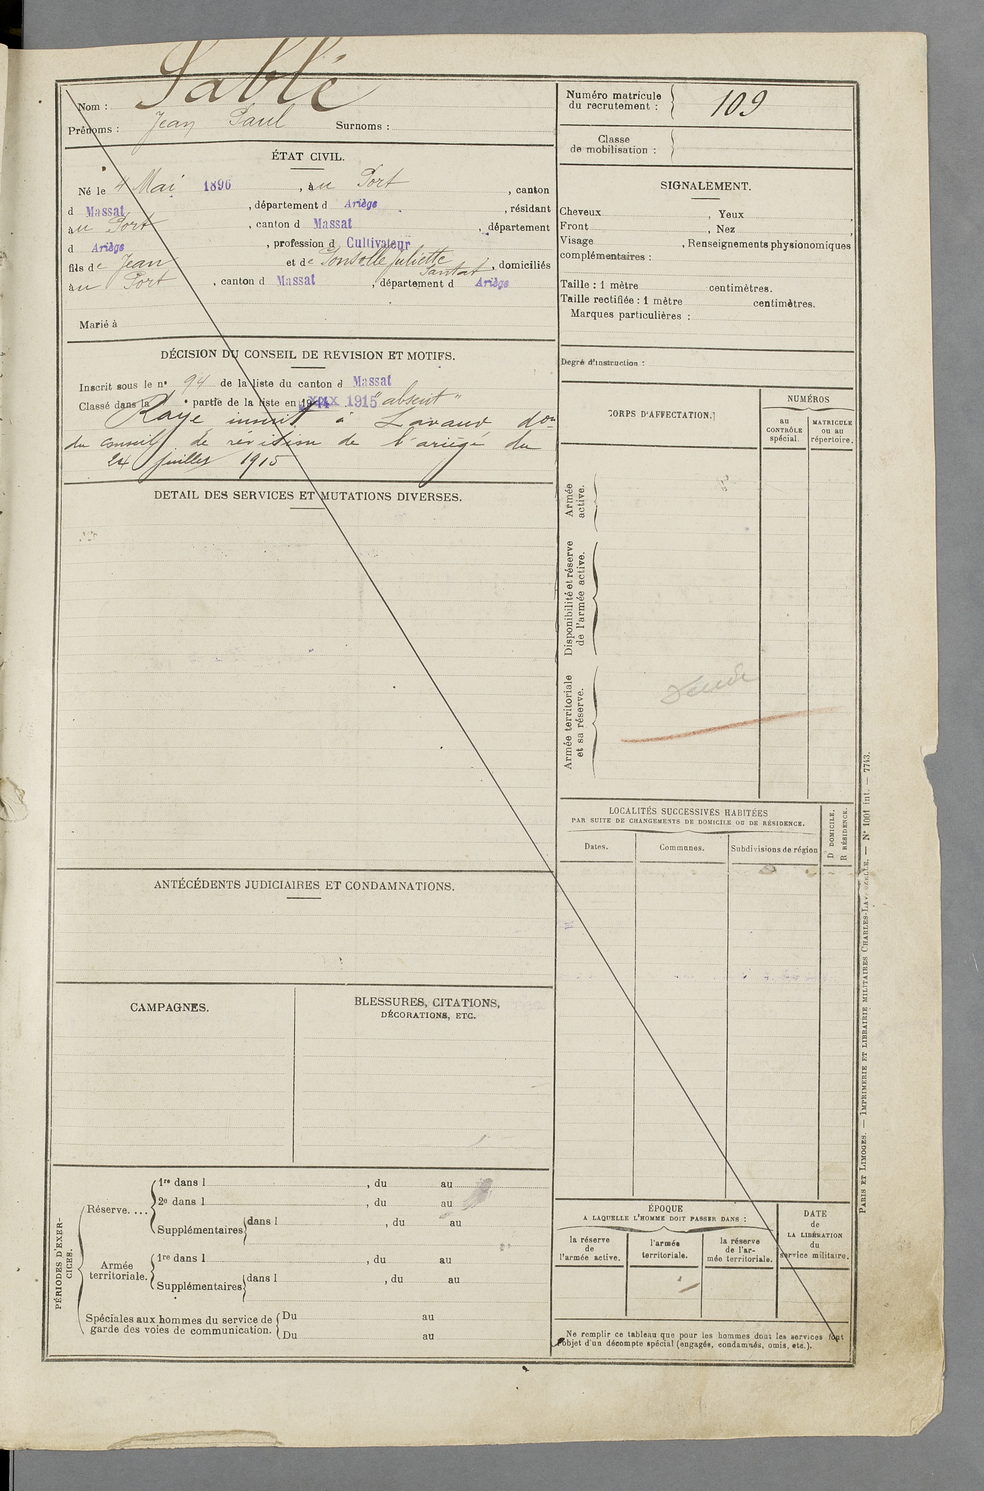 Sablé
Nom :
Prénoms : Jean Paul Surnoms :
ÉTAT CIVIL.
Né le 4 Mai 1896, au Port, canton
d Massat, département d Ariège, résidant
au Port, canton d Massat, département
d Ariège, profession d Cultivateur
fils de Jean et de Juliette, domiciliés
au Port, canton d Massat, département d Ariège
Marié à
DÉCISION DU CONSEIL DE REVISION ET MOTIFS.
Inscrit sous le n° 94 de la liste du canton d Massat
Classé dans la partie de la liste en 1915 "absent"
Rayé inscrit à Lavaur don
du conseil de révision de l'ariège du
24 juillet 1915
DETAIL DES SERVICES ET MUTATIONS DIVERSES.
ANTÉCÉDENTS JUDICIAIRES ET CONDAMNATIONS.
CAMPAGNES.
BLESSURES, CITATIONS,
DÉCORATIONS, ETC.
PÉRIODES D'EXER-
CICES.
Réserve....
1re dans l , du au
2e dans l , du au
Supplémentaires dans l , du au
Armée
territoriale.
1re dans l , du au
Supplémentaires dans l , du au
Spéciales aux hommes du service de
garde des voies de communication.
Du au
Du au
Numéro matricule
du recrutement : 109
Classe
de mobilisation :
SIGNALEMENT.
Cheveux , Yeux ,
Front , Nez ,
Visage , Renseignements physionomiques
complémentaires :
Taille : 1 mètre centimètres.
Taille rectifiée : 1 mètre centimètres.
Marques particulières :
Degré d'instruction :
CORPS D'AFFECTATION.
NUMÉROS
au
CONTRÔLE
spécial.
MATRICULE
ou au
répertoire.
Armée
active.
Disponibilité et réserve
de l'armée active.
Armée territoriale
et sa réserve.
LOCALITÉS SUCCESSIVES HABITÉES
PAR SUITE DE CHANGEMENTS DE DOMICILE OU DE RÉSIDENCE.
Dates.
Communes.
Subdivisions de région
D DOMICILE.
R RÉSIDENCE.
ÉPOQUE
A LAQUELLE L'HOMME DOIT PASSER DANS :
la réserve
de
l'armée active.
l'armée
territoriale.
la réserve
de l'ar-
mée territoriale.
DATE
de
LA LIBÉRATION
du
service militaire.
Ne remplir ce tableau que pour les hommes dont les services font
l'objet d'un décompte spécial (engagés, condamnés, omis, etc.).
PARIS ET LIMOGES. — IMPRIMERIE ET LIBRAIRIE MILITAIRES CHARLES-LAVAUZELLE. — N° 1001 int. — 7743.